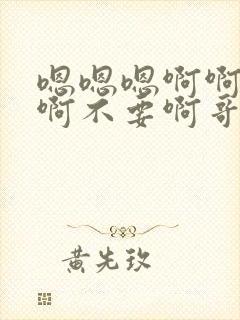 嗯嗯嗯啊啊
啊不要啊哥
黄先玫